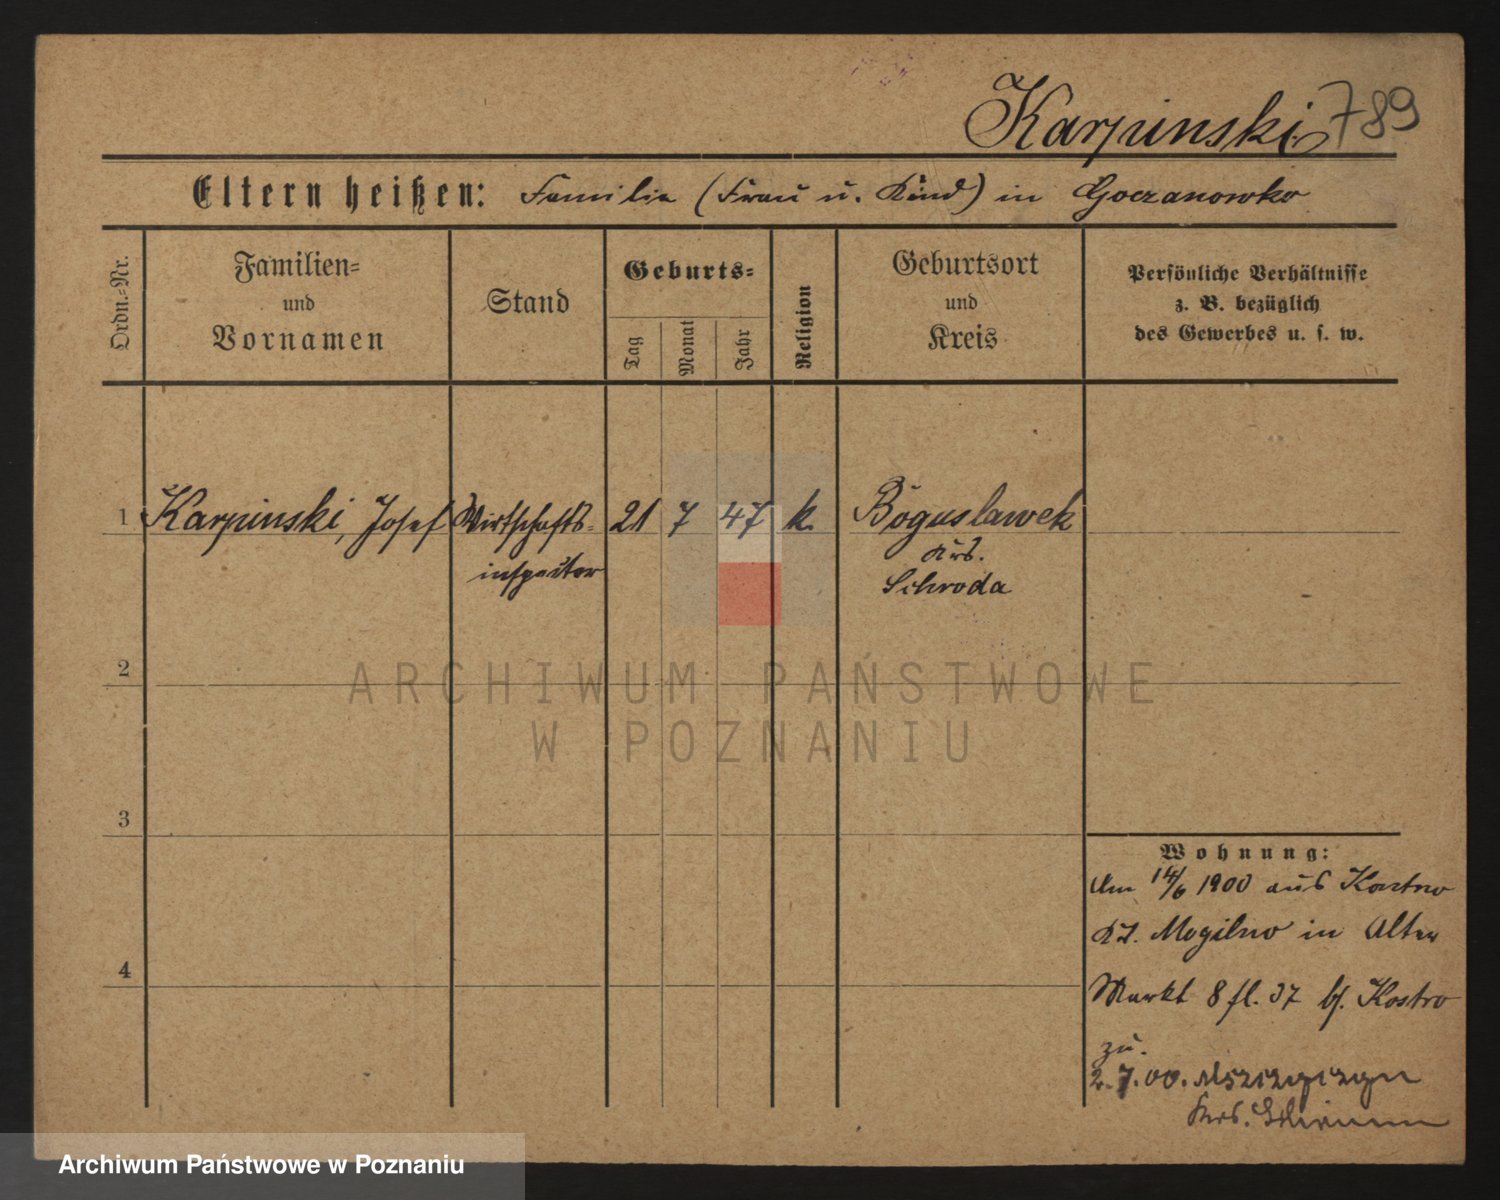 Karpinski 789
Eltern heißen: Familie (Frau u. Kind) in Goczanowko
Ordn.-Nr.
Familien-
und
Vornamen
Stand
Geburts-
Tag
Monat
Jahr
Religion
Geburtsort
und
Kreis
Persönliche Verhältnisse
z. B. bezüglich
des Gewerbes u. s. w.
1 Karpinski, Josef Wirtschafts- 21 7 47 k. Boguslawek
inspector
Krs.
Schroda
2
ARCHIWUM PAŃSTWOWE
W POZNANIU
3
4
Wohnung:
Am 14/6 1900 aus
Mogilno in Alter
Markt 8 fl. 37 b/. Kostro
zu.
2.7.00.
Krs.
Archiwum Państwowe w Poznaniu